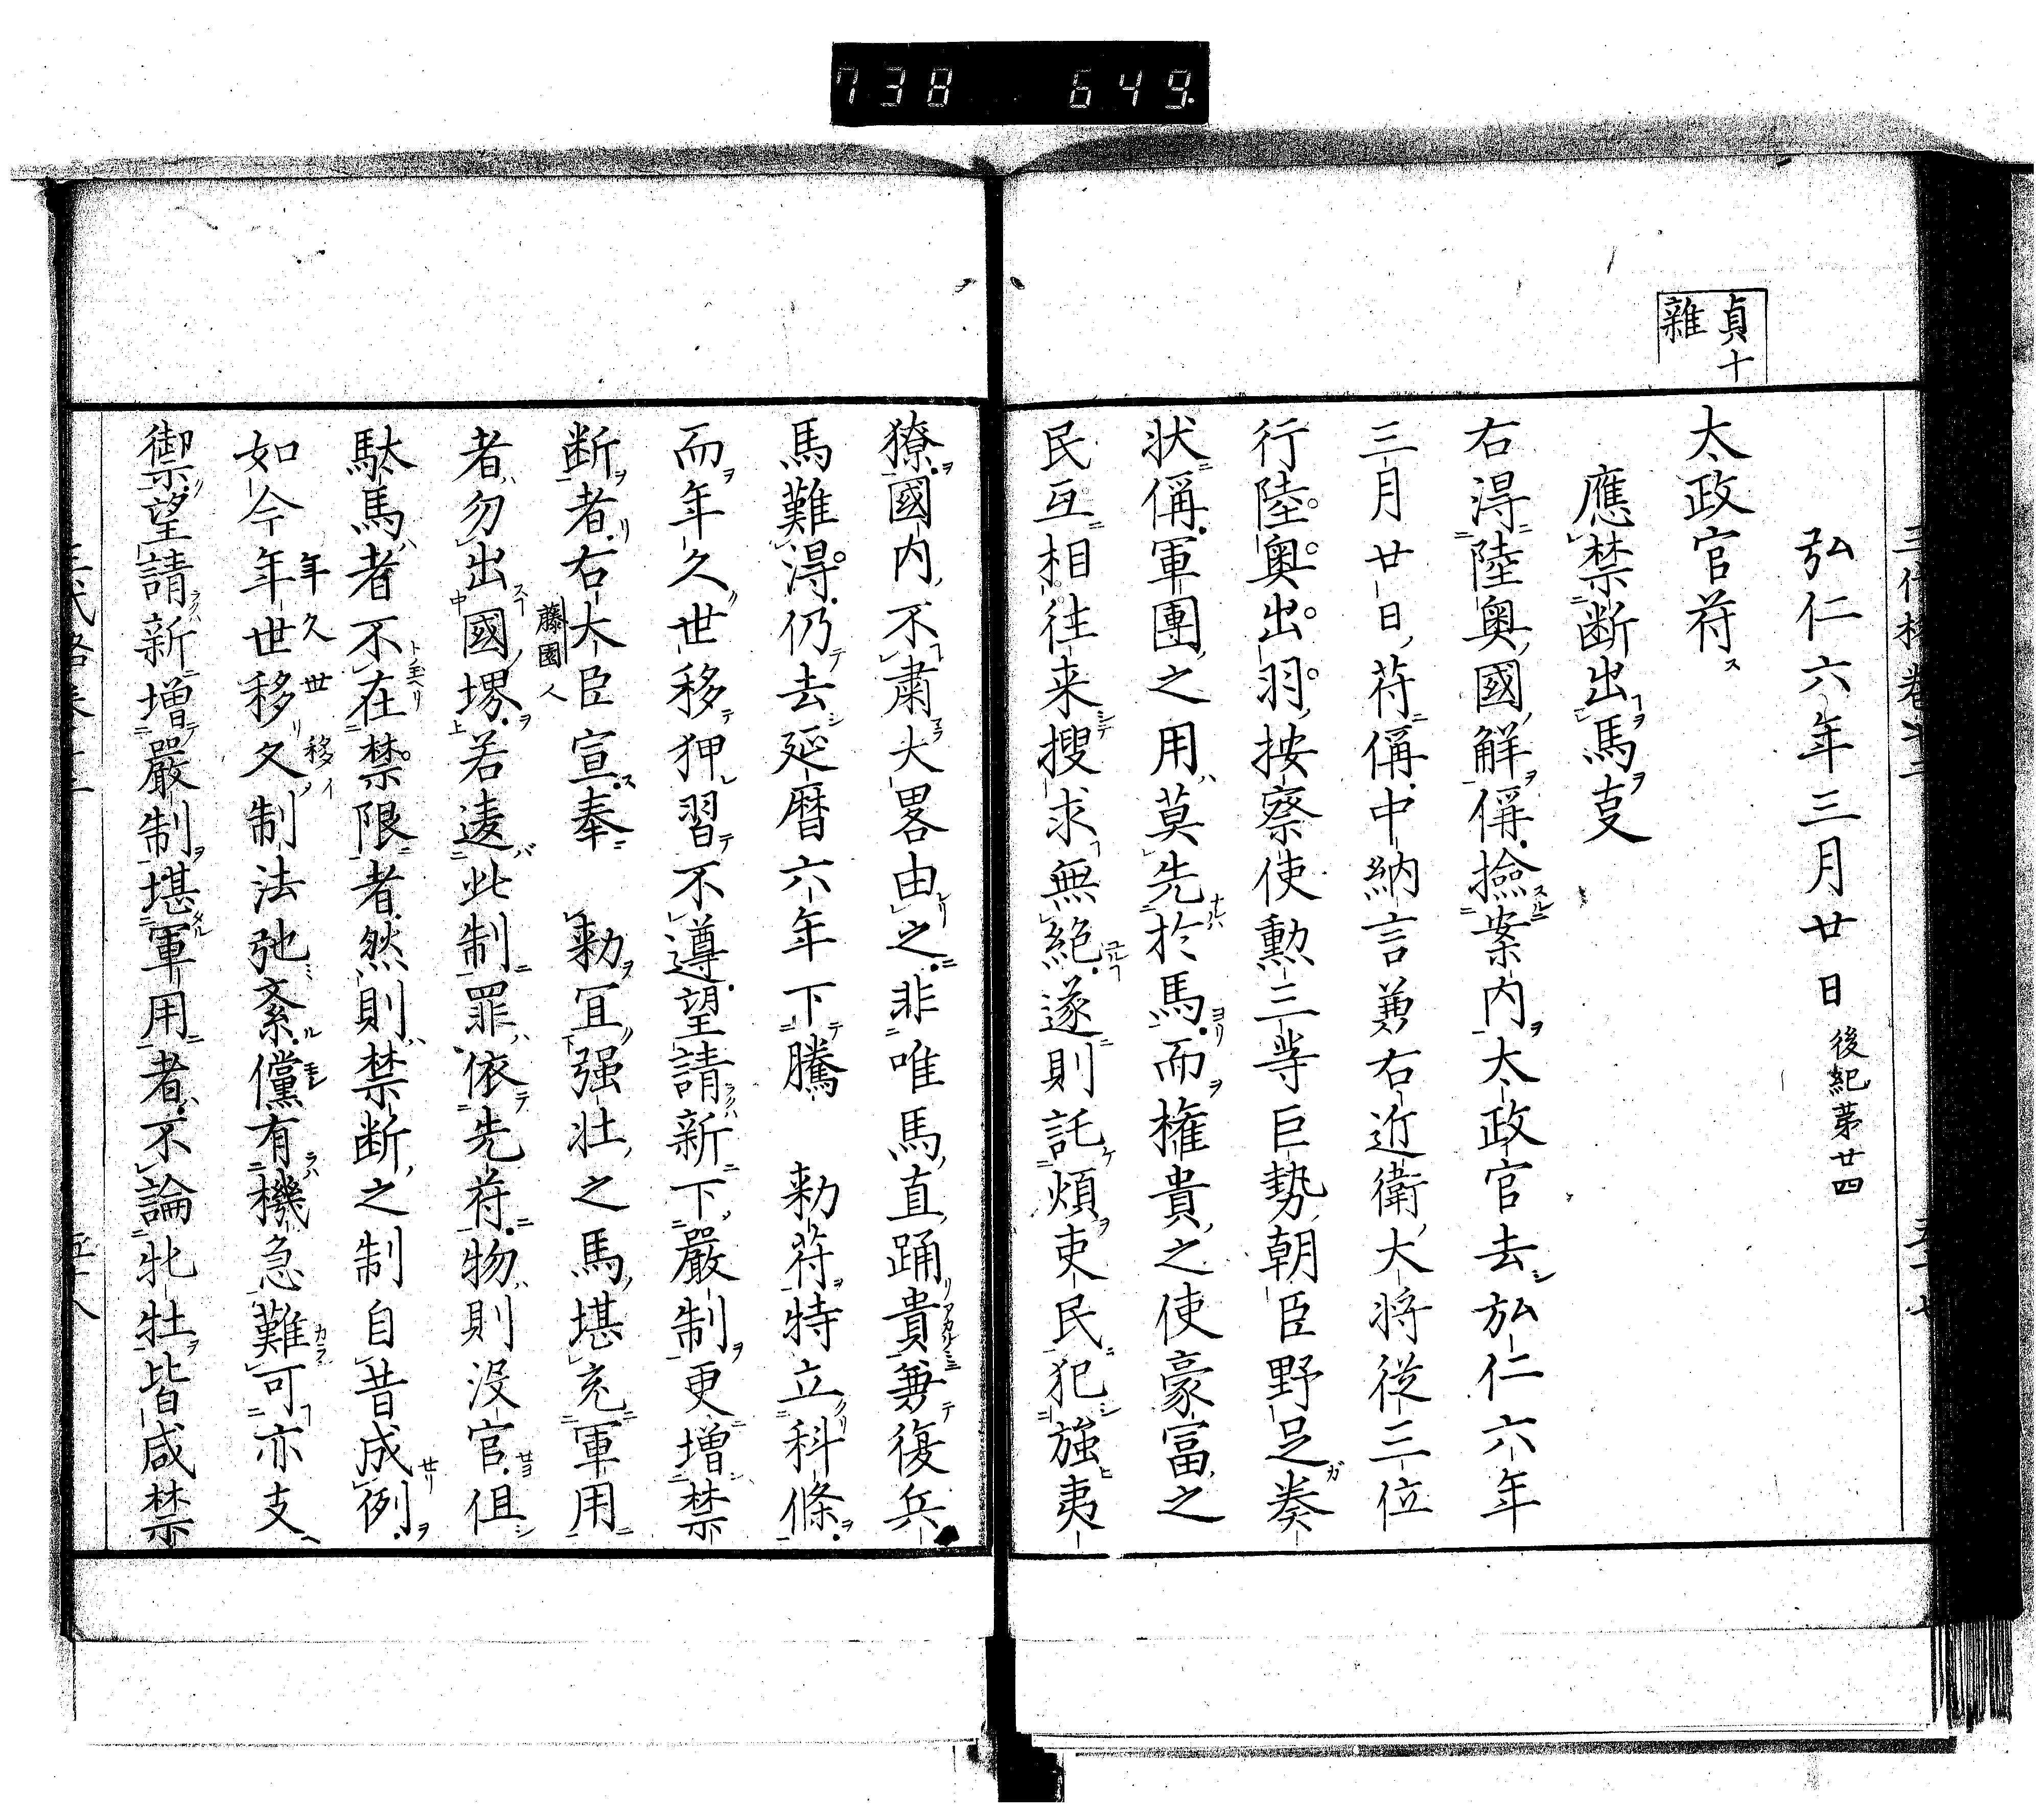 738 649
弘仁六年三月廿日 後紀第廿四
貞十
雜
太政官符
應禁断出馬支
右淂陸奥國解偁撿案内太政官去弘仁六年
三月廿日符偁中納言兼右近衛大将従三位
行陸奥出羽按察使勲三等巨勢朝臣野足奏
状偁軍團之用莫先於馬而権貴之使豪富之
民互相往来搜求無絶遂則託煩吏民犯強夷
獠國内不肅大畧由之非唯馬直踊貴兼復兵
馬難淂仍去延暦六年下騰 勅符特立科條
而年久世移狎習不遵望請新下嚴制更増禁
断者右大臣宣奉 勅冝强壮之馬堪充軍用
藤園人
者勿出國堺若違此制罪依先符物則没官但
駄馬者不在禁限者然則禁断之制自昔成例
年久世移
如今年世移久制法弛紊儻有機急難可亦支
禦望請新増嚴制堪軍用者不論牝牡皆咸禁